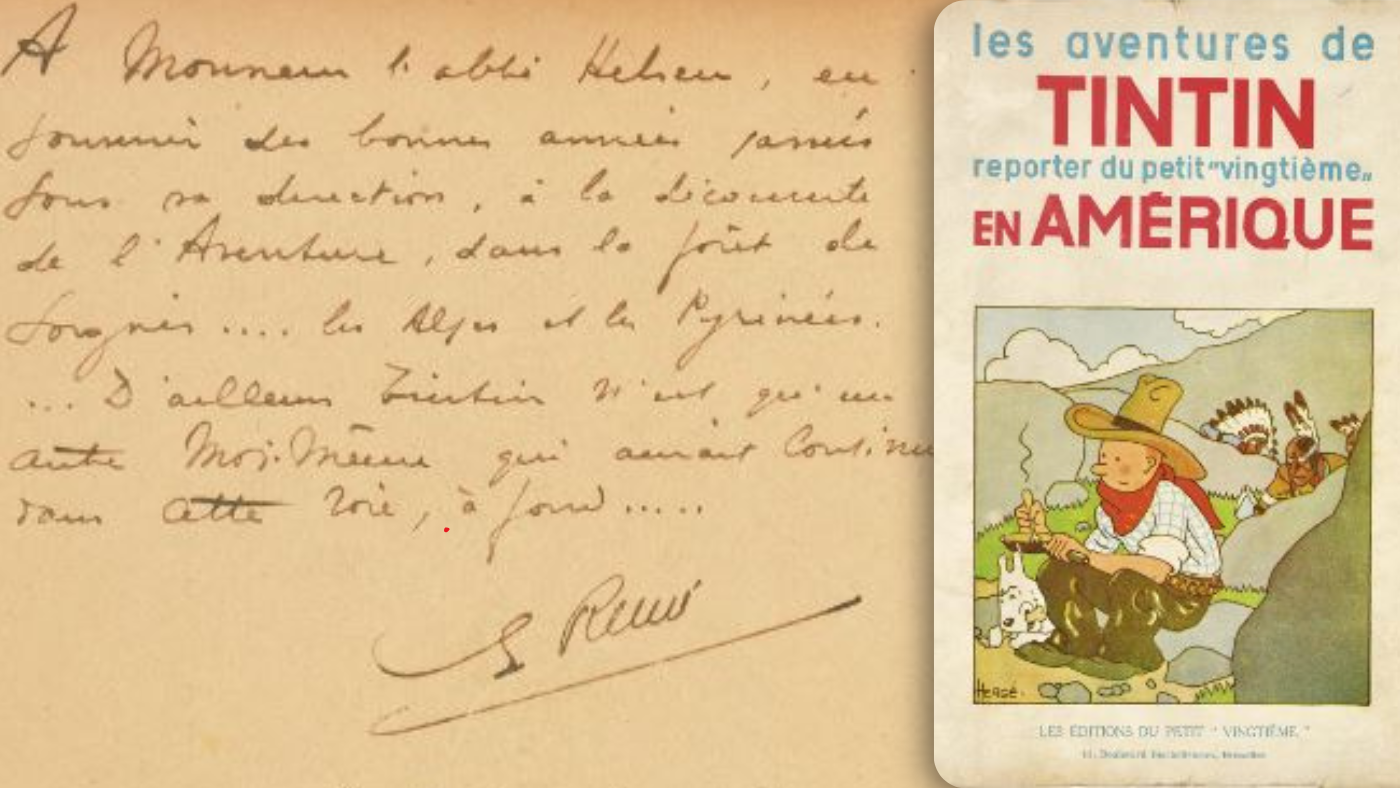 A Monsieur l'abbé Helsen, en
souvenir des bonnes années passées
sous sa direction, à la découverte
de l'Aventure, dans la forêt de
Soignes .... les Alpes et les Pyrénées.
... D'ailleurs Tintin n'est qu'un
autre Moi-Même qui aurait continué
dans cette voie, à fond .....
G Remi
les aventures de
TINTIN
reporter du petit "vingtième"
EN AMÉRIQUE
Hergé.
LES ÉDITIONS DU PETIT " VINGTIÈME "
Boulevard Bruxelles